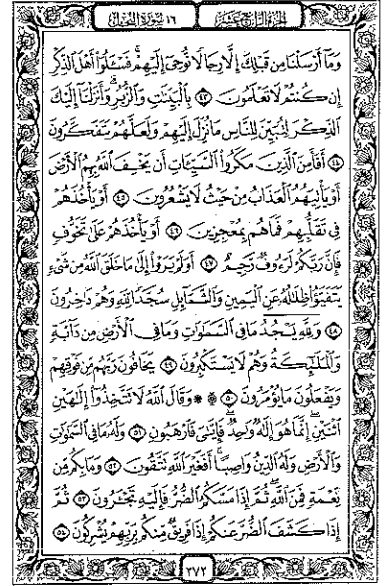 الجزء الرابع عشر
١٦ سورة النحل
وَمَا أَرْسَلْنَا مِن قَبْلِكَ إِلَّا رِجَالًا نُّوحِي إِلَيْهِمْ فَسْـَٔلُوٓا۟ أَهْلَ الذِّكْرِ
إِن كُنتُمْ لَا تَعْلَمُونَ ٤٣ بِالْبَيِّنَٰتِ وَالزُّبُرِ وَأَنزَلْنَا إِلَيْكَ
الذِّكْرَ لِتُبَيِّنَ لِلنَّاسِ مَا نُزِّلَ إِلَيْهِمْ وَلَعَلَّهُمْ يَتَفَكَّرُونَ
٤٤ أَفَأَمِنَ الَّذِينَ مَكَرُوا السَّيِّـَٔاتِ أَن يَخْسِفَ اللَّهُ بِهِمُ الْأَرْضَ
أَوْ يَأْتِيَهُمُ الْعَذَابُ مِنْ حَيْثُ لَا يَشْعُرُونَ ٤٥ أَوْ يَأْخُذَهُمْ
فِي تَقَلُّبِهِمْ فَمَا هُم بِمُعْجِزِينَ ٤٦ أَوْ يَأْخُذَهُمْ عَلَىٰ تَخَوُّفٍ
فَإِنَّ رَبَّكُمْ لَرَءُوفٌ رَّحِيمٌ ٤٧ أَوَلَمْ يَرَوْا إِلَىٰ مَا خَلَقَ اللَّهُ مِن شَيْءٍ
يَتَفَيَّؤُا ظِلَٰلُهُ عَنِ الْيَمِينِ وَالشَّمَائِلِ سُجَّدًا لِّلَّهِ وَهُمْ دَاخِرُونَ
٤٨ وَلِلَّهِ يَسْجُدُ مَا فِي السَّمَٰوَاتِ وَمَا فِي الْأَرْضِ مِن دَابَّةٍ
وَالْمَلَٰئِكَةُ وَهُمْ لَا يَسْتَكْبِرُونَ ٤٩ يَخَافُونَ رَبَّهُم مِّن فَوْقِهِمْ
وَيَفْعَلُونَ مَا يُؤْمَرُونَ ٥٠ ۞ وَقَالَ اللَّهُ لَا تَتَّخِذُوا إِلَٰهَيْنِ
اثْنَيْنِ إِنَّمَا هُوَ إِلَٰهٌ وَاحِدٌ فَإِيَّايَ فَارْهَبُونِ ٥١ وَلَهُ مَا فِي السَّمَٰوَاتِ
وَالْأَرْضِ وَلَهُ الدِّينُ وَاصِبًا أَفَغَيْرَ اللَّهِ تَتَّقُونَ ٥٢ وَمَا بِكُم مِّن
نِّعْمَةٍ فَمِنَ اللَّهِ ثُمَّ إِذَا مَسَّكُمُ الضُّرُّ فَإِلَيْهِ تَجْـَٔرُونَ ٥٣ ثُمَّ
إِذَا كَشَفَ الضُّرَّ عَنكُمْ إِذَا فَرِيقٌ مِّنكُم بِرَبِّهِمْ يُشْرِكُونَ ٥٤
٣٧٢